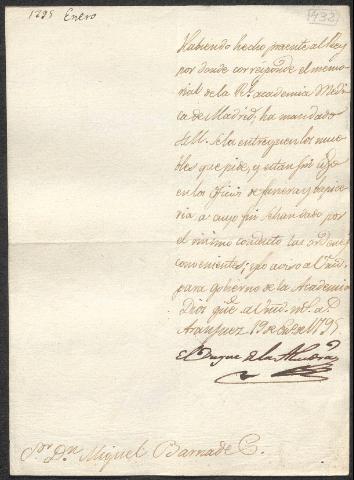 1795 Enero
432
Habiendo hecho presente al Rey
por donde corresponde el memo
rial de la Rl. academia Medi
ca de Madrid, ha mandado
S.M. se la entreguen los mue
bles que pide, y estan sin uso
en los Oficios de Furriera y tapice
ria a cuyo fin se han dado por
el mismo conducto las ordenes
convenientes; y lo aviso a Vmd.
para gobierno de la Academia
Dios gue. a Vmd. ms. as.
Aranjuez 19 de Enero 1795
El Duque de la
Sor. Dn. Miguel Barnades.